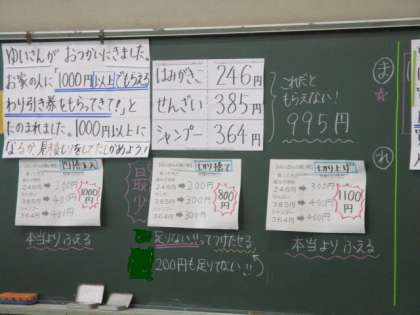 ゆいさんが おつかいにきました。
お家の人に「1000円以上でもらえる
わり引き券をもらってきて!」と
たのまれました。1000円以上に
なるか見積もりをしてたしかめよう!
はみがきこ 246円
せんざい 385円
シャンプー 364円
これだと
もらえない!
995円
ま
れ
246円→200円
385円→400円
364円→400円
1000円
本当よりふえる
最少
切り捨て
246円→200円
385円→300円
364円→300円
800円
足りない!!ってつけたせる
200円も足りてない!!
切り上げ
246円→300円
385円→400円
364円→400円
1100円
本当よりふえる